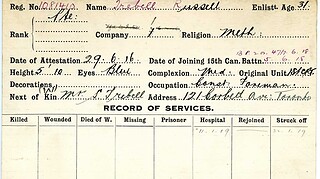 Reg. No. 1081413 NAME Trebell Russell Enlistt. Age 31
Rank Pte. Company Religion Meth.
Date of Attestation 29.6.16 Date of Joining 15th Can. Battn. 5.6.18
Height 5'10 Eyes Blue Complexion Med. Original Unit
Decorations Occupation Const. Foreman
Next of Kin Mr. S. Trebell Address 121 Corbett Ave. Toronto
RECORD OF SERVICES.
Killed Wounded Died of W. Missing Prisoner Hospital Rejoined Struck off